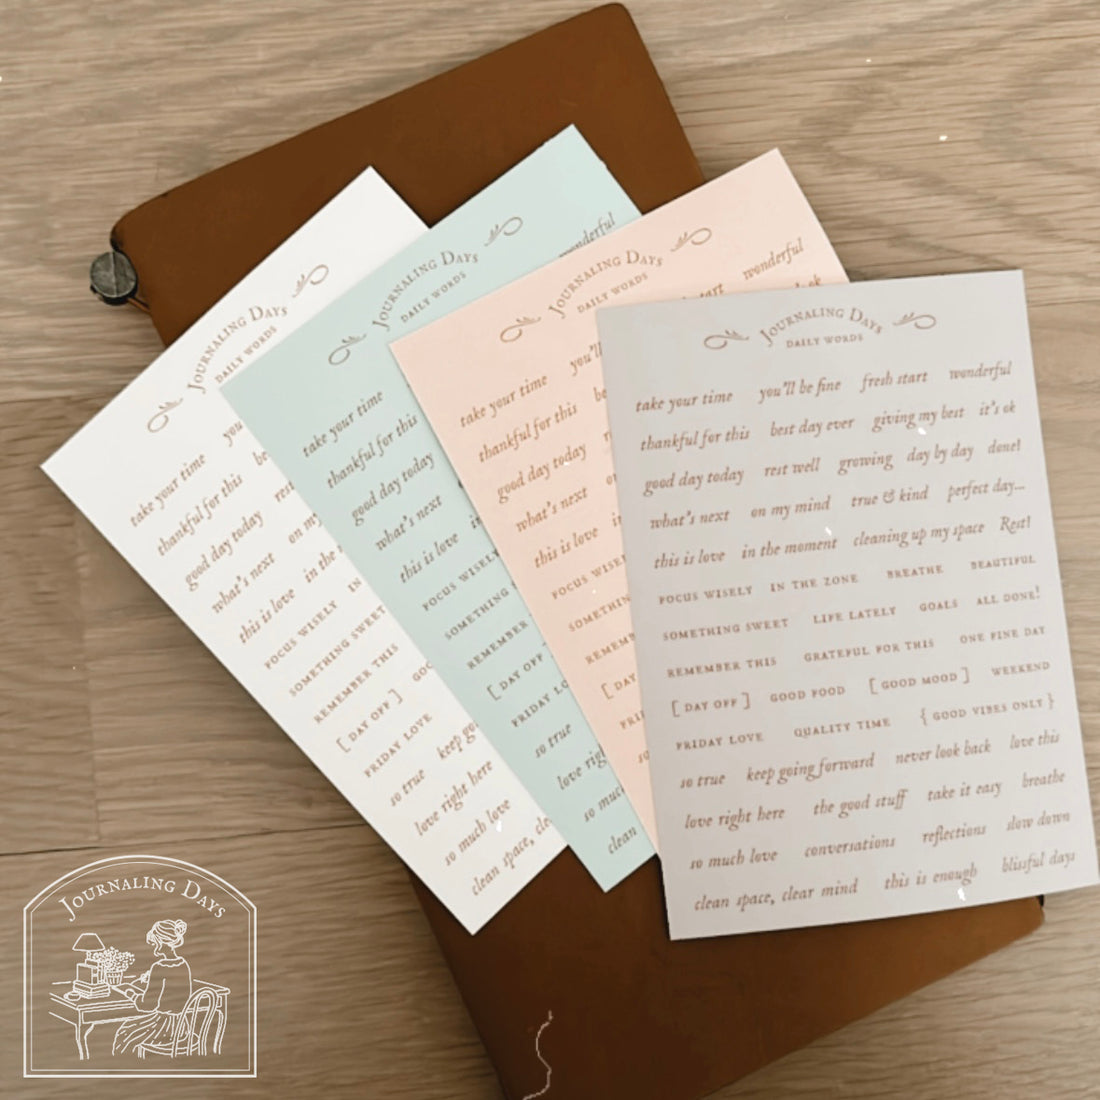 Journaling Days
DAILY WORDS
take your time you
thankful for this be
good day today rest
what's next on my
this is love in the
FOCUS WISELY IN
SOMETHING SWEET
REMEMBER THIS GO
[ DAY OFF ]
FRIDAY LOVE
so true keep go
love right here
so much love
clean space, cle
Journaling Days
DAILY WORDS
wonderful
take your time
thankful for this
good day today
what's next
this is love in
FOCUS WISELY
SOMETHING
REMEMBER
[ DAY OFF
FRIDAY LO
so true
love rig
so muc
clean
Journaling Days
DAILY WORDS
start wonderful
take your time you'll
thankful for this be
good day today
what's next
this is love
FOCUS WISEL
SOMETHIN
REMEMB
[ DAY
FRI
so
Journaling Days
DAILY WORDS
take your time you'll be fine fresh start wonderful
thankful for this best day ever giving my best it's ok
good day today rest well growing day by day done!
what's next on my mind true & kind perfect day...
this is love in the moment cleaning up my space Rest!
FOCUS WISELY IN THE ZONE BREATHE BEAUTIFUL
SOMETHING SWEET LIFE LATELY GOALS ALL DONE!
REMEMBER THIS GRATEFUL FOR THIS ONE FINE DAY
[ DAY OFF ] GOOD FOOD [ GOOD MOOD ] WEEKEND
FRIDAY LOVE QUALITY TIME { GOOD VIBES ONLY }
so true keep going forward never look back love this
love right here the good stuff take it easy breathe
so much love conversations reflections slow down
clean space, clear mind this is enough blissful days
Journaling Days